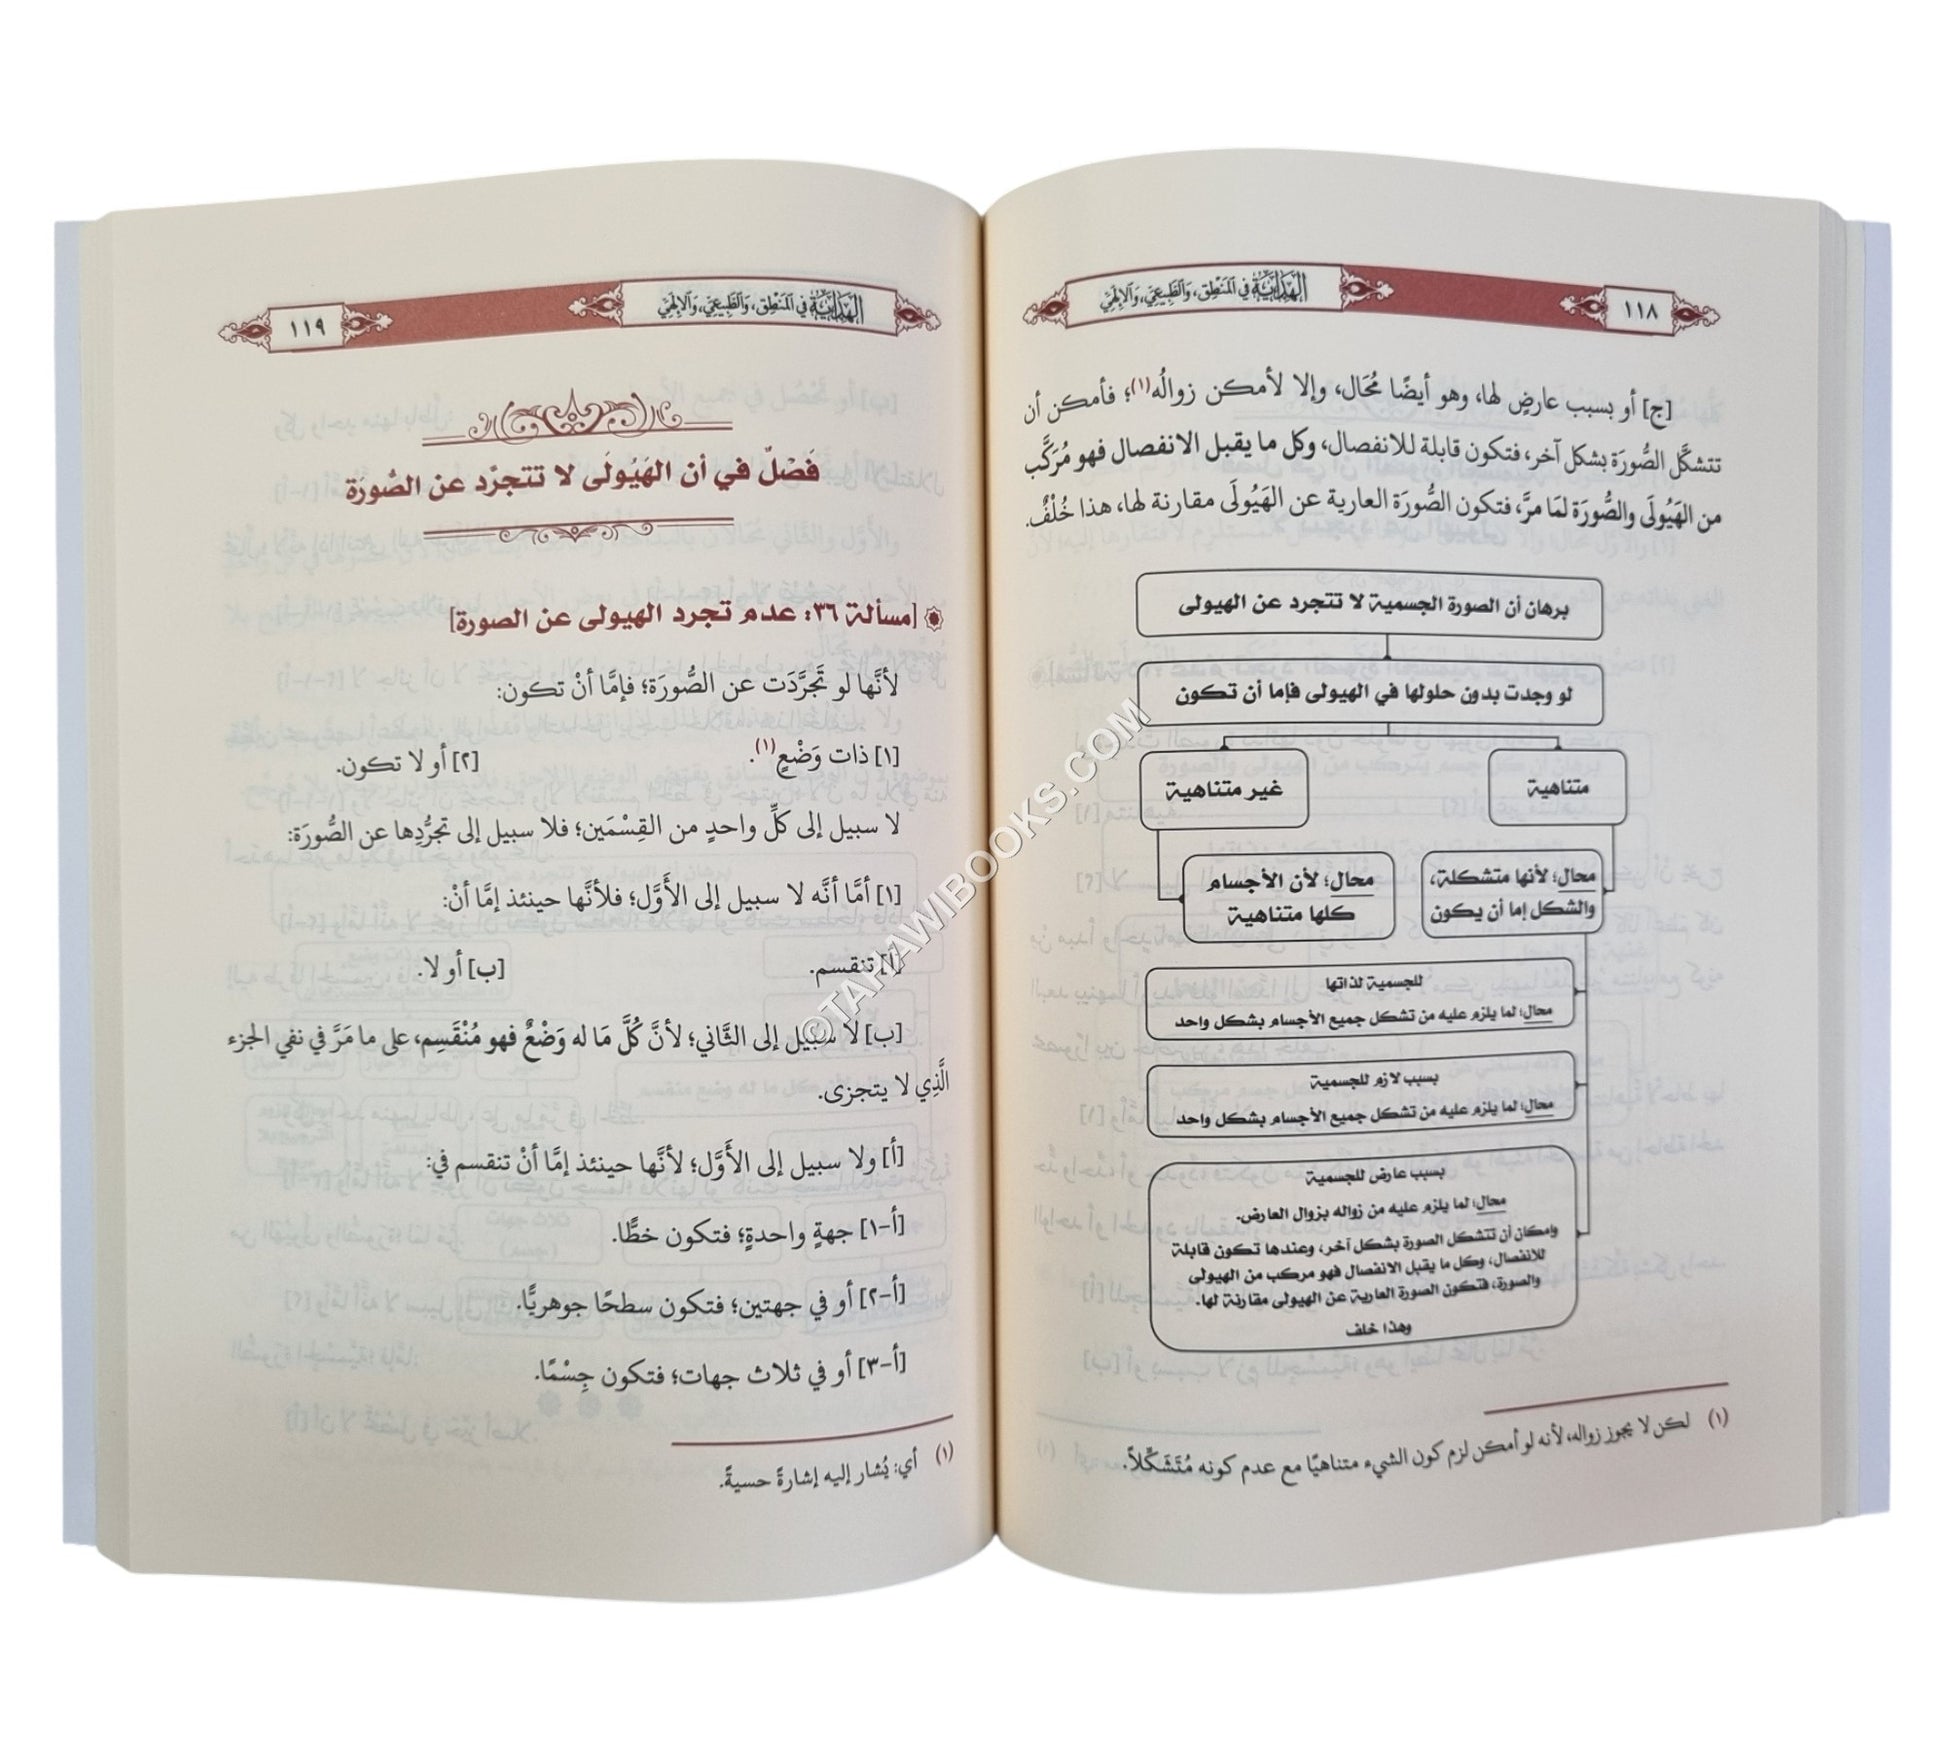 الهداية في المنطق، والطبيعي، والإلهي
١١٨
[ج] أو بسبب عارضٍ لها، وهو أيضًا مُحَال، وإلا لأمكن زوالُه(١)؛ فأمكن أن
تتشكَّل الصُّورَة بشكل آخر، فتكون قابلة للانفصال، وكل ما يقبل الانفصال فهو مُرَكَّب
من الهَيُولَى والصُّورَة لمَا مرَّ، فتكون الصُّورَة العارية عن الهَيُولَى مقارنة لها، هذا خُلْفٌ.
برهان أن الصورة الجسمية لا تتجرد عن الهيولى
لو وجدت بدون حلولها في الهيولى فإما أن تكون
متناهية
غير متناهية
محال؛ لأنها متشكلة،
والشكل إما أن يكون
محال؛ لأن الأجسام
كلها متناهية
للجسمية لذاتها
محال؛ لما يلزم عليه من تشكل جميع الأجسام بشكل واحد
بسبب لازم للجسمية
محال؛ لما يلزم عليه من تشكل جميع الأجسام بشكل واحد
بسبب عارض للجسمية
محال؛ لما يلزم عليه من زواله بزوال العارض.
وامكان أن تتشكل الصورة بشكل آخر، وعندها تكون قابلة
للانفصال، وكل ما يقبل الانفصال فهو مركب من الهيولى
والصورة، فتكون الصورة العارية عن الهيولى مقارنة لها.
وهذا خلف
(١) لكن لا يجوز زواله، لأنه لو أمكن لزم كون الشيء متناهيًا مع عدم كونه مُتَشَكِّلاً.
الهداية في المنطق، والطبيعي، والإلهي
١١٩
فَصْلٌ في أن الهَيُولَى لا تتجرَّد عن الصُّورَة
[مسألة ٣٦: عدم تجرد الهيولى عن الصورة]
لأنَّها لو تَجرَّدَت عن الصُّورَة؛ فإمَّا أنْ تكون:
[١] ذات وَضْعٍ(١). [٢] أو لا تكون.
لا سبيل إلى كلِّ واحدٍ من القِسْمَين؛ فلا سبيل إلى تجرُّدِها عن الصُّورَة:
[١] أمَّا أنَّه لا سبيل إلى الأَوَّل؛ فلأنَّها حينئذ إمَّا أنْ:
[أ] تنقسم. [ب] أو لا.
[ب] لا سبيل إلى الثَّاني؛ لأنَّ كُلَّ مَا له وَضْعٌ فهو مُنْقَسِم، على ما مَرَّ في نفي الجزء
الَّذِي لا يتجزى.
[أ] ولا سبيل إلى الأَوَّل؛ لأنَّها حينئذ إمَّا أنْ تنقسم في:
[أ-١] جهةٍ واحدةٍ؛ فتكون خطًّا.
[أ-٢] أو في جهتين؛ فتكون سطحًا جوهريًّا.
[أ-٣] أو في ثلاث جهات؛ فتكون جِسْمًا.
(١) أي: يُشار إليه إشارةً حسيةً.
©TAHAWIBOOKS.COM